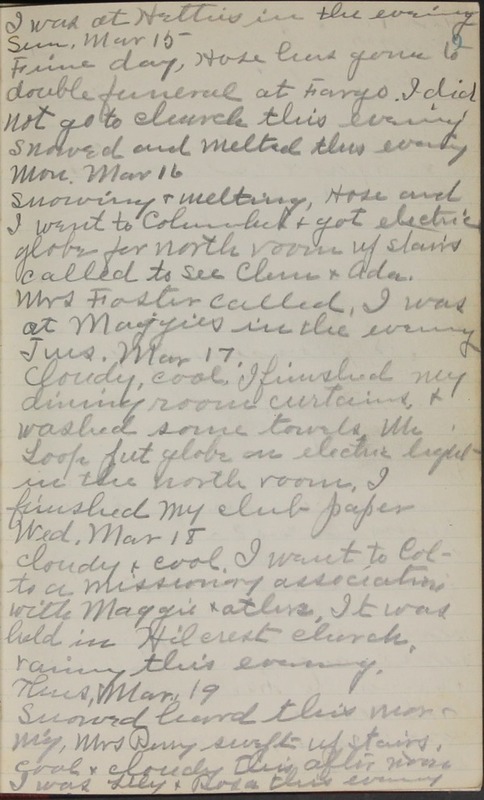 I was at Hatties in the evening
Sun. Mar 15
Fine day, Hose has gone to
double funeral at Fargo. I did
not go to church this evening
snowed and melted this evening
Mon. Mar 16
snowing & melting, Hose and
I went to Columbus & got electric
globe for north room up stairs
called to see Clem & Ada.
Mrs Foster called, I was
at Maggies in the evening
Tues. Mar 17.
Cloudy, cool. I finished my
dining room curtains, &
washed some towels, Mr
Loop put globe on electric light
in the north room, I
finished my club paper
Wed. Mar 18
cloudy & cool. I went to Col-
to a missionary association
with Maggie & others. It was
held in Hilcrest church.
rainy this evening.
Thurs, Mar, 19
Snowed hard this mor-
ing, Mrs swept up stairs.
cool & cloudy this after noon
I was Lily & Rosa this evening